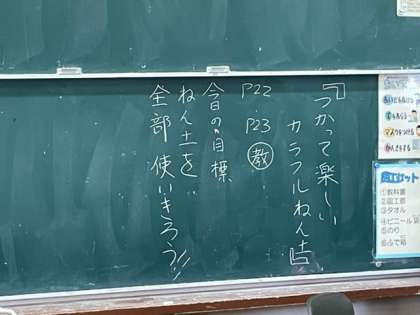 『つかって楽しい
カラフルねん土』
P22
P23
教
今日の目標
ねん土を
全部使いきろう!!
図工セット
①教科書
②図工袋
③タオル
④ビニール袋
⑤のり
⑥ふで箱